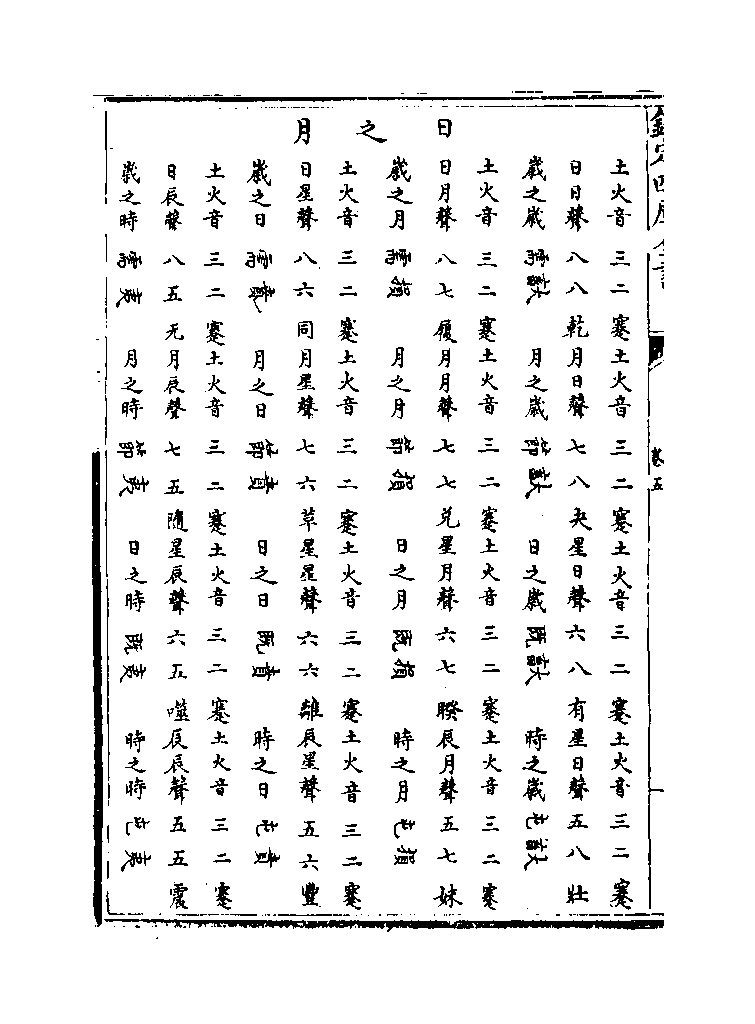 欽定四庫全書
卷五
日之月
土火音三二蹇土火音三二蹇土火音三二蹇土火音三二蹇
日日聲八八乾月日聲七八夬星日聲六八有星日聲五八壯
歲之歲需大畜月之歲節大畜日之歲既大畜時之歲屯大畜
土火音三二蹇土火音三二蹇土火音三二蹇土火音三二蹇
日月聲八七履月月聲七七兌星月聲六七睽辰月聲五七妹
歲之月需損月之月節損日之月既損時之月屯損
土火音三二蹇土火音三二蹇土火音三二蹇土火音三二蹇
日星聲八六同月星聲七六革星星聲六六離辰星聲五六豐
歲之日需賁月之日節賁日之日既賁時之日屯賁
土火音三二蹇土火音三二蹇土火音三二蹇土火音三二蹇
日辰聲八五无月辰聲七五隨星辰聲六五噬辰辰聲五五震
歲之時需夷月之時節夷日之時既夷時之時屯夷